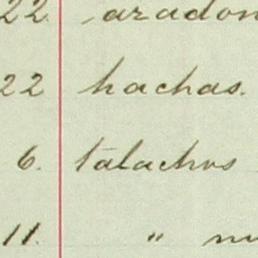 22 aradon
22 hachas.
6. talachos
11. "